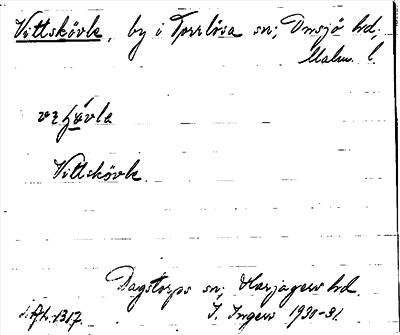 Vittskövle, by i Torrlösa sn; Onsjö hd.
Malm. l.
Vittskövle.
Dagstorps sn; Harjagers hd.
I. Ingers 1930-31.